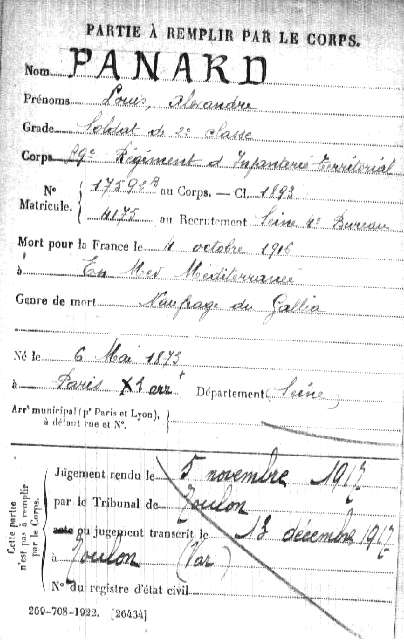 PARTIE À REMPLIR PAR LE CORPS.
Nom PANARD
Prénoms Louis, Alexandre
Grade Soldat de 2e Classe
Corps 29e Régiment d'Infanterie Territorial
N° Matricule. { 17592 au Corps. — Cl. 1893
4175 au Recrutement Seine 4e Bureau
Mort pour la France le 4 octobre 1916
à En Mer Méditerranée
Genre de mort Naufrage du Gallia
Né le 6 Mai 1873
à Paris X1 arrt Département Seine
Arrt municipal (pr Paris et Lyon), à défaut rue et N°. {
Cette partie n'est pas à remplir par le Corps.
Jugement rendu le 5 novembre 1917
par le Tribunal de Toulon
acte ou jugement transcrit le 13 décembre 1917
à Toulon (Var)
N° du registre d'état civil
269-708-1922. [26434]